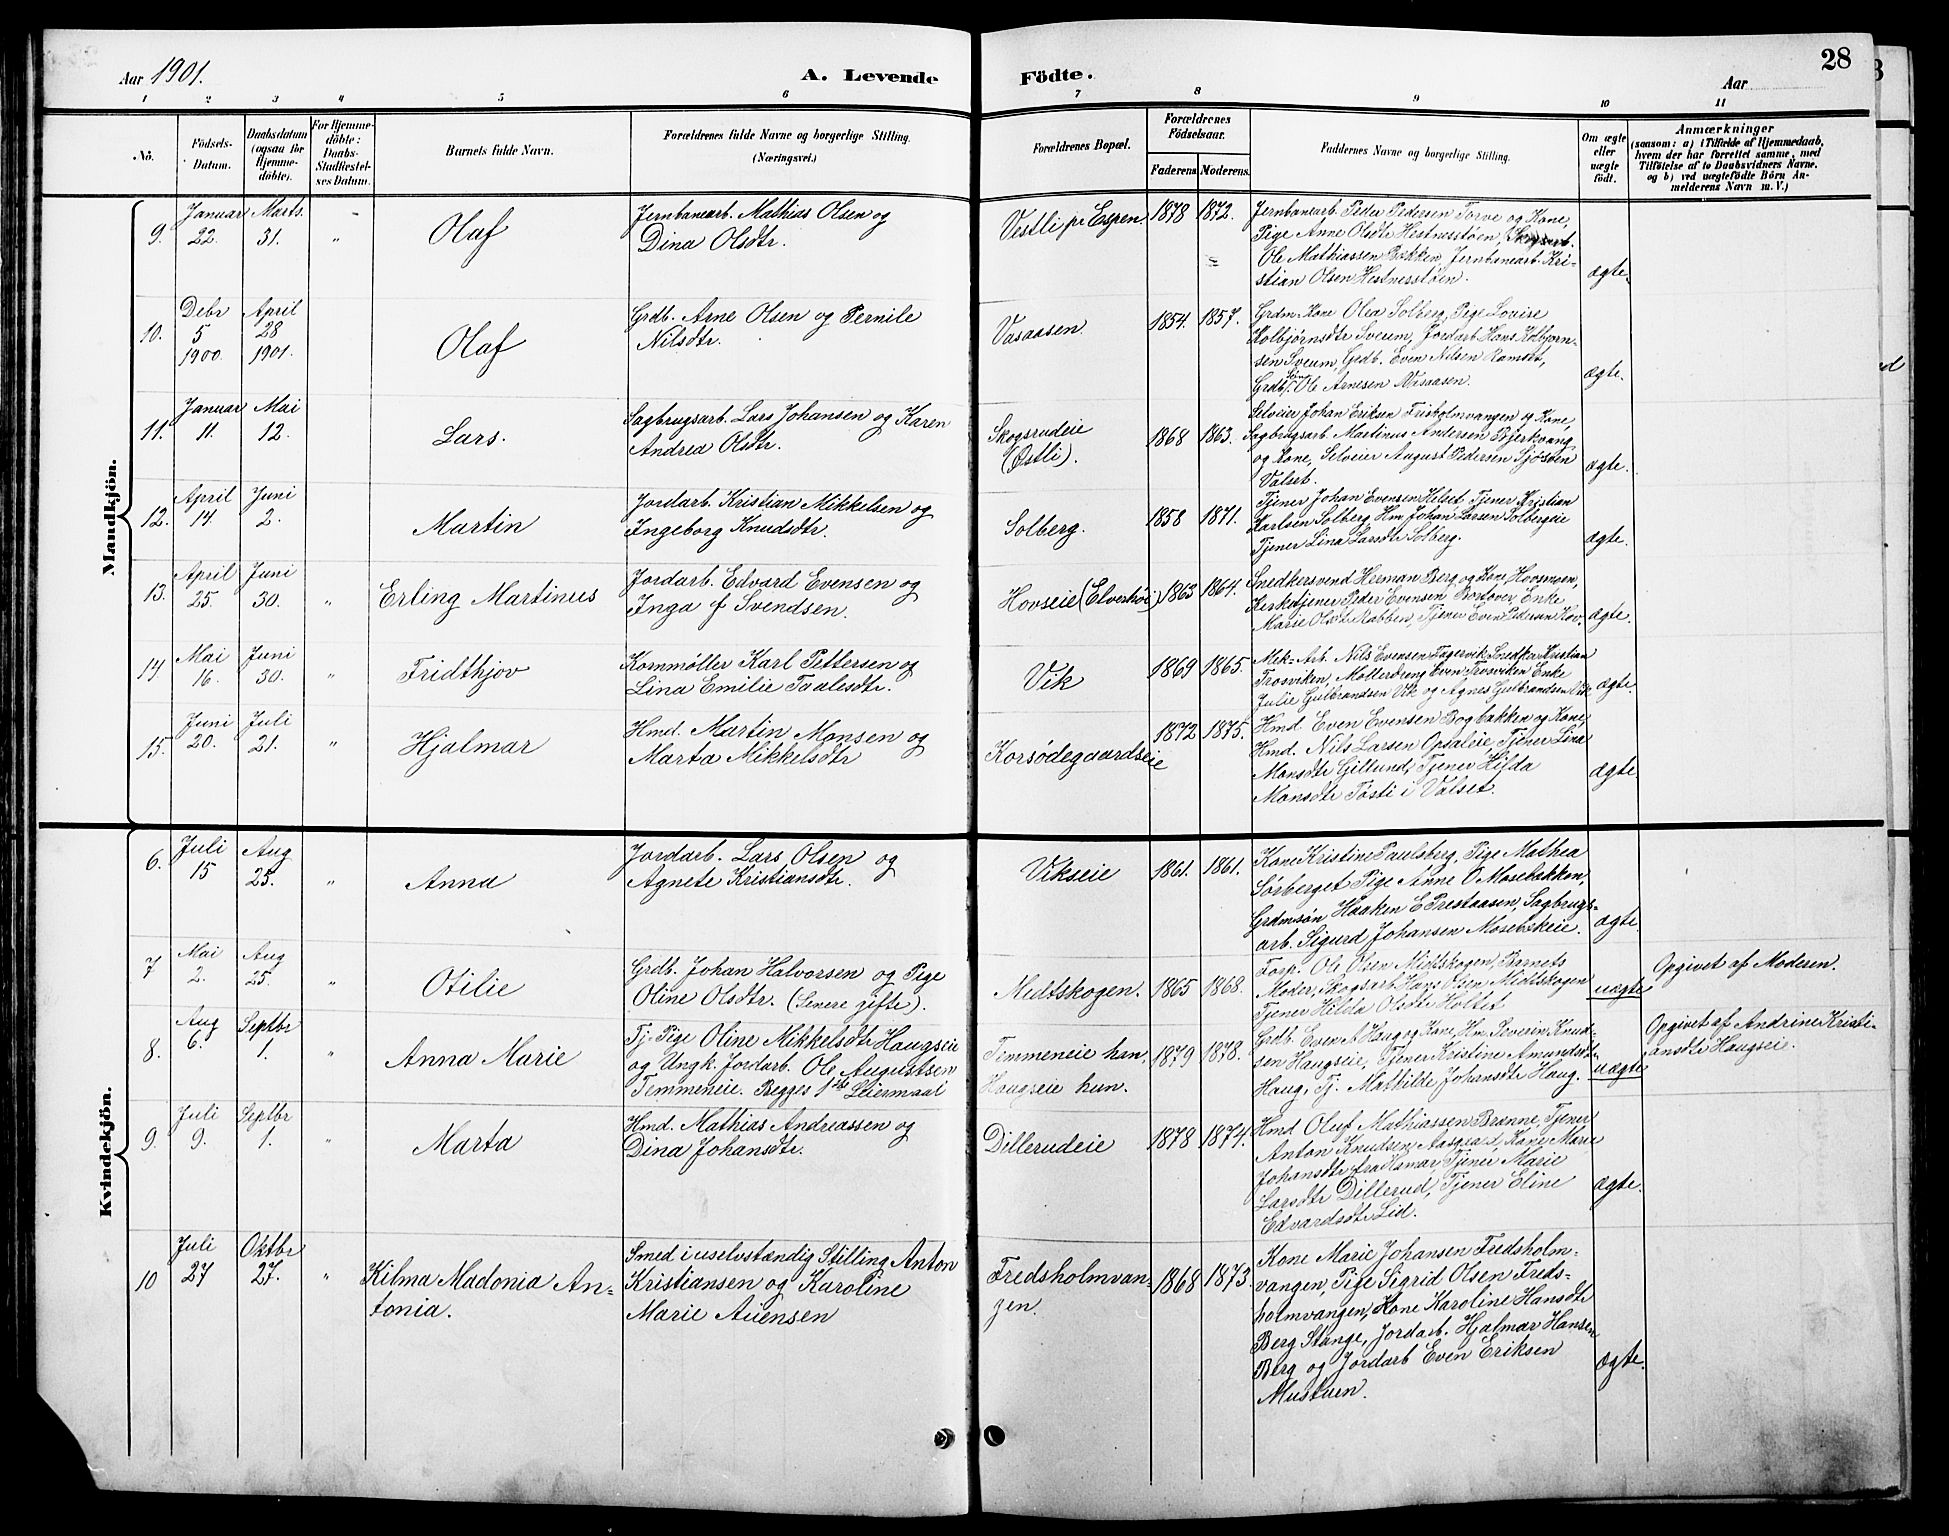 Aar 1901.
A. Levende Födte.
Aar
28
1 2 3 4 5 6 7 8 9 10 11
No.
Födsels-Datum.
Daabsdatum (ogsaa for Hjemmedöbte).
For Hjemmedöbte: Daabs-Stadfæstelses Datum.
Barnets fulde Navn.
Forældrenes fulde Navne og borgerlige Stilling. (Næringsvei.)
Forældrenes Bopæl.
Forældrenes Födselsaar.
Faderens Moderens.
Faddernes Navne og borgerlige Stilling.
Om ægte eller uægte födt.
Anmærkninger
(saasom: a) i Tilfælde af Hjemmedaab, hvem der har forrettet samme, med Tilföielse af to Daabsvidners Navne. og b) ved uægtefödte Börn Anmelderens Navn m. V.)
Mandkjön.
9. Januar 22. Marts 31. " Olaf
Jernbanearb. Mathias Olsen og
Dina Olsdtr.
Vestli pr Espen. 1878 1872.
Jernbanearb. Peder Pedersen Torve og Kone,
Pige Anne Olsdtr Hestnesstøen,
Ole Mathiassen Bakken, Jernbanearb. Kri-
stian Olsen Hestnesstøen.
ægte.
10. Debr 5 1900. April 28 1901. Olaf
Grdb. Arne Olsen og Pernile
Nilsdtr.
Vasaasen. 1854. 1857.
Grdm. Kone Olea Solberg, Pige Lovise
Kolbjørnsdtr Sveum, Jordarb Hans Kolbjørn-
sen Sveum, Grdb. Even Nilsen Ramset,
Grdb. Søn Ole Arnesen Vasaasen.
ægte.
11. Januar 11. Mai 12. Lars.
Sagbrugsarb. Lars Johansen og Karen
Andrea Olsdtr.
Skogsrudeie
(Østli).
1868 1863.
Selveier Johan Eriksen Frisholmvangen og Kone,
Sagbrugsarb. Martinus Andersen Bjerkvang
og Kone, Selveier August Pedersen Sjøsøen
Valset.
ægte.
12. April 14. Juni 2. Martin
Jordarb. Kristian Mikkelsen og
Ingeborg Knudsdtr.
Solberg. 1858 1871.
Tjener Johan Evensen Helset Tjener Kristian
Karlsen Solberg Hm Johan Larsen Solbergeie
Tjener Lina Larsdtr Solberg.
ægte.
13. April 25. Juni 30. " Erling Martinus
Jordarb. Edvard Evensen og
Inga f Svendsen.
Hovseie (Elverhøi) 1863 1864.
Snedkersvend Herman Berg og Kone Hovsmoen,
Kirketjener Peder Evensen Bortover Enke
Marie Olsdtr Rabben, Tjener Even Pedersen Hov.
ægte.
14 Mai 16. Juni 30. " Fridthjov
Kornmøller Karl Pettersen og
Lina Emilie Paalesdtr.
Vik 1869 1865.
Mek. Arb. Nils Evensen Fagervik Snedker Kristian
Trosviken, Møllerdreng Even Trosviken Enke
Julie Gulbrandsen Vik og Agnes Gulbrandsen Vik
ægte.
15. Juni 20. Juli 21. " Hjalmar
Hmd. Martin Monsen og
Marta Mikkelsdtr
Korsødegaardseie 1872 1875.
Hmd. Even Evensen Bogbakken og Kone,
Hmd. Nils Larsen Opsaleie, Tjener Lina
Monsdtr Gillund, Tjener Hilda
Monsdtr Tosti i Valset.
ægte
Kvindekjön.
6. Juli 15 Aug 25. " Anna
Jordarb. Lars Olsen og
Agnete Kristiansdtr.
Vikseie 1861. 1861.
Kone Kristine Paulsberg, Pige Mathea
Sørberget Pige Anne O Mosebakken,
Grdmsøn Haaken E Prestaasen, Sagbrugs-
arb. Sigurd Johansen Mosebkeie.
ægte.
7 Mai 2. Aug 25. " Otilie
Grdb. Johan Halvorsen og Pige
Oline Olsdtr. (Senere gifte).
Nedtskogen. 1865 1868.
Forp. Ole Olsen Midtskogen, Barnets
Moder, Skogsarb Hans Olsen Midtskogen
Tjener Hilda Olsdtr Holtet
uægte
Opgivet af Moderen.
8. Aug 6. Septbr 1. " Anna Marie
Tj. Pige Oline Mikkelsdtr Haugseie
og Ungk. Jordarb. Ole Augustsen
Temmeneie. Begges 1ste Leiermaal
Temmeneie han,
Haugseie hun.
1879 1878.
Grdb. Even A Haug og Kone, Hm Severin Knud-
sen Haugseie, Tjener Kristine Amundsdtr
Haug, Tj. Mathilde Johansdtr Haug.
uægte
Opgivet af Andrine Kristi-
ansdtr Haugseie.
9. Juli 9. Septbr 1. " Marta
Hmd. Mathias Andreassen og
Dina Johansdtr.
Dillerudeie 1878 1874.
Hmd Oluf Mathiassen Brønne, Tjener
Anton Knudsen Kone Marie
Johansdtr fra Hamar, Tjener Marie
Larsdtr Dillerud, Tjener Eline
Edvardsdtr Lid.
ægte.
10 Juli 27 Oktbr 27. " Kilma Madonia An-
tonia.
Smed i uselvstændig Stilling Anton
Kristiansen og Karoline
Marie Auensen
Fredsholmvan-
gen.
1868 1873.
Kone Marie Johansen Fredsholm-
vangen, Pige Sigrid Olsen Freds-
holmvangen, Kone Karoline Hansdtr
Berg Stange, Jordarb. Hjalmar Hansen
Berg og Jordarb Even Eriksen
Mustuen.
ægte.